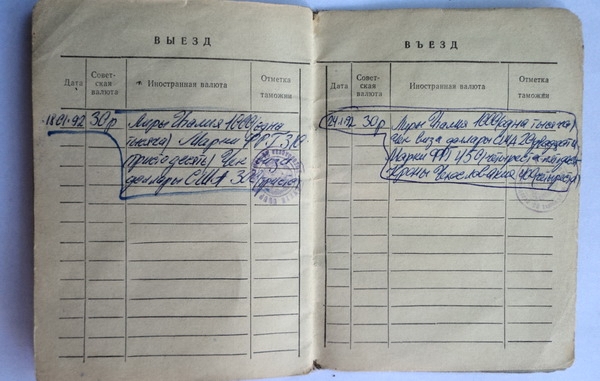 ВЫЕЗД
Дата
Совет-
ская
валюта
Иностранная валюта
Отметка
таможни
18.01.92 30р Лиры Италия 1000 (одна
тысяча) Марки ФРГ 310
Чек виза
доллары США 300 (триста)
ВЪЕЗД
Дата
Совет-
ская
валюта
Иностранная валюта
Отметка
таможни
24.1.92 30р Лиры Италия 1000 (одна тысяча)
Чек виза доллары США 20 (двадцать)
Марки ФРГ 450
Кроны Чехословакия 400 (четыреста)